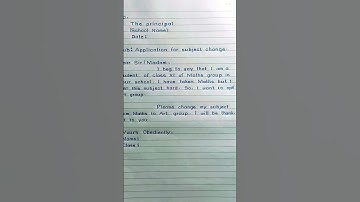 The principal
(School Name)
Date:
Sub: Application for subject change.
Sir/Madam,
I beg to say that I am a
student of class XI of Maths group in
your school. I have taken Maths but I
this subject hard. So, I want to opt
group.
Please change my subject
Maths to Art group. I will be thank
to you.
Yours Obediently,
Name:
Class: